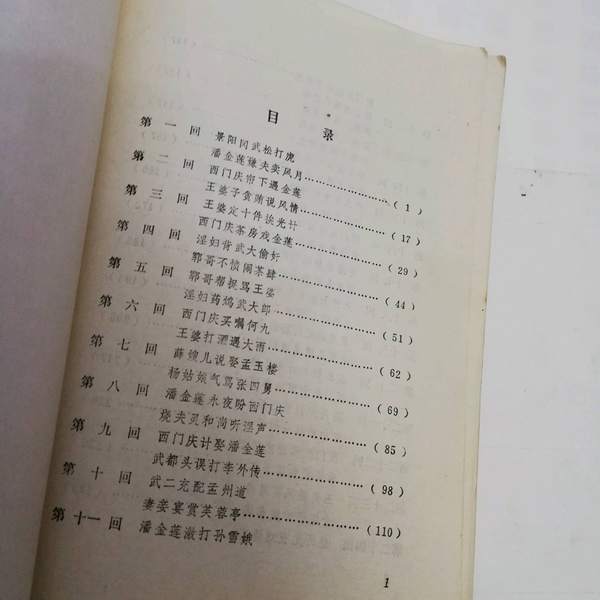 目录
第一回 景阳冈武松打虎
潘金莲嫌夫卖风月……(1)
第二回 西门庆帘下遇金莲
王婆子贪贿说风情……(17)
第三回 王婆定十件挨光计
西门庆茶房戏金莲……(29)
第四回 淫妇背武大偷奸
郓哥不愤闹茶肆……(44)
第五回 郓哥帮捉骂王婆
淫妇药鸩武大郎……(51)
第六回 西门庆买嘱何九
王婆打酒遇大雨……(62)
第七回 薛嫂儿说娶孟玉楼
杨姑娘气骂张四舅……(69)
第八回 潘金莲永夜盼西门庆
烧夫灵和尚听淫声……(85)
第九回 西门庆计娶潘金莲
武都头误打李外传……(98)
第十回 武二充配孟州道
妻妾宴赏芙蓉亭……(110)
第十一回 潘金莲激打孙雪娥
1